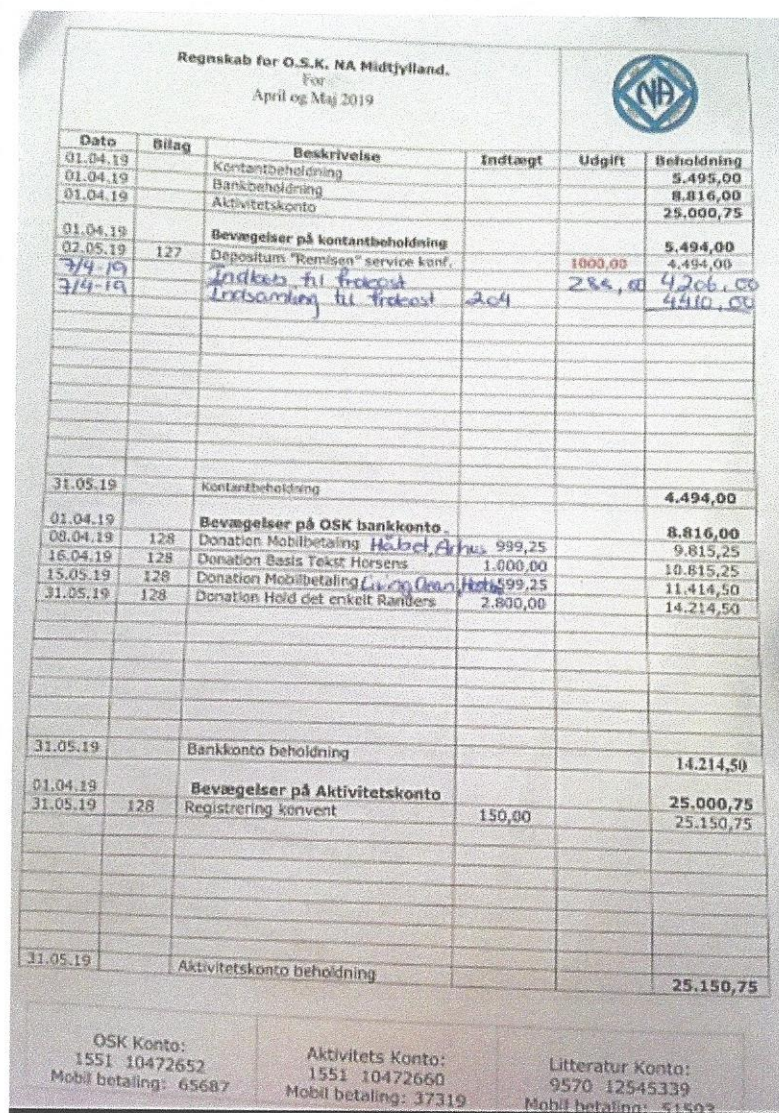 Regnskab for O.S.K. NA Midtjylland.
For
April og Maj 2019
NA
Dato Bilag Beskrivelse Indtægt Udgift Beholdning
01.04.19 Kontantbeholdning 5.495,00
01.04.19 Bankbeholdning 8.816,00
01.04.19 Aktivitetskonto 25.000,75
01.04.19 Bevægelser på kontantbeholdning 5.494,00
02.05.19 127 Depositum "Remisen" service konf. 1000,00 4.494,00
7/4-19 Indkøb til frokost 288,00 4206,00
7/4-19 Indsamling til frokost 204 4410,00
31.05.19 Kontantbeholdning 4.494,00
01.04.19 Bevægelser på OSK bankkonto 8.816,00
08.04.19 128 Donation Mobilbetaling Håbet, Århus 999,25 9.815,25
16.04.19 128 Donation Basis Tekst Horsens 1.000,00 10.815,25
15.05.19 128 Donation Mobilbetaling Living Clean, 599,25 11.414,50
31.05.19 128 Donation Hold det enkelt Randers 2.800,00 14.214,50
31.05.19 Bankkonto beholdning 14.214,50
01.04.19 Bevægelser på Aktivitetskonto 25.000,75
31.05.19 128 Registrering konvent 150,00 25.150,75
31.05.19 Aktivitetskonto beholdning 25.150,75
OSK Konto:
1551 10472652
Mobil betaling: 65687
Aktivitets Konto:
1551 10472660
Mobil betaling: 37319
Litteratur Konto:
9570 12545339
Mobil betaling: 51593